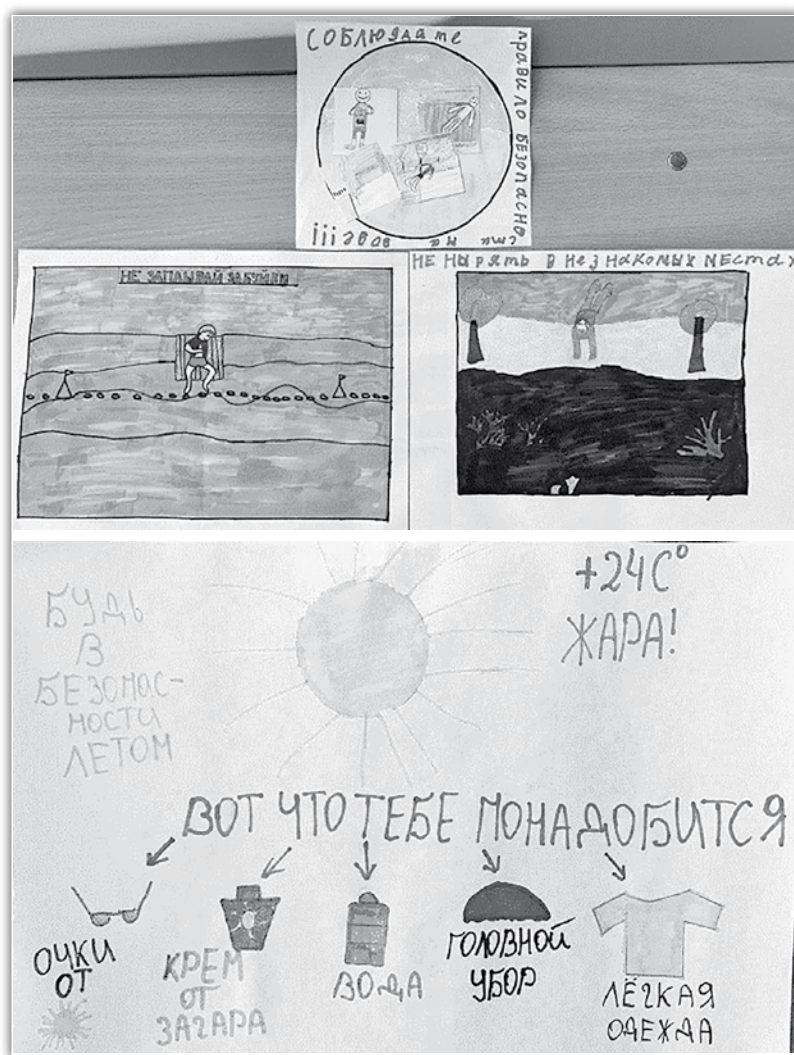 СОБЛЮДАте
правило БЕЗОПАСНО
сти на воде!!!
НЕ ЗАПЛЫВАЙ ЗАБУЙКИ
НЕ НЫРЯТЬ В НеЗНАКОМЫХ МЕСТАХ
БУДЬ
В
БЕЗОПАС-
НОСТИ
ЛЕТОМ
+24С°
ЖАРА!
ВОТ ЧТО ТЕБЕ ПОНАДОБИТСЯ
ОЧКИ
ОТ
КРЕМ
ОТ
ЗАГАРА
ВОДА
ГОЛОВНОЙ
УБОР
ЛЁГКАЯ
ОДЕЖДА